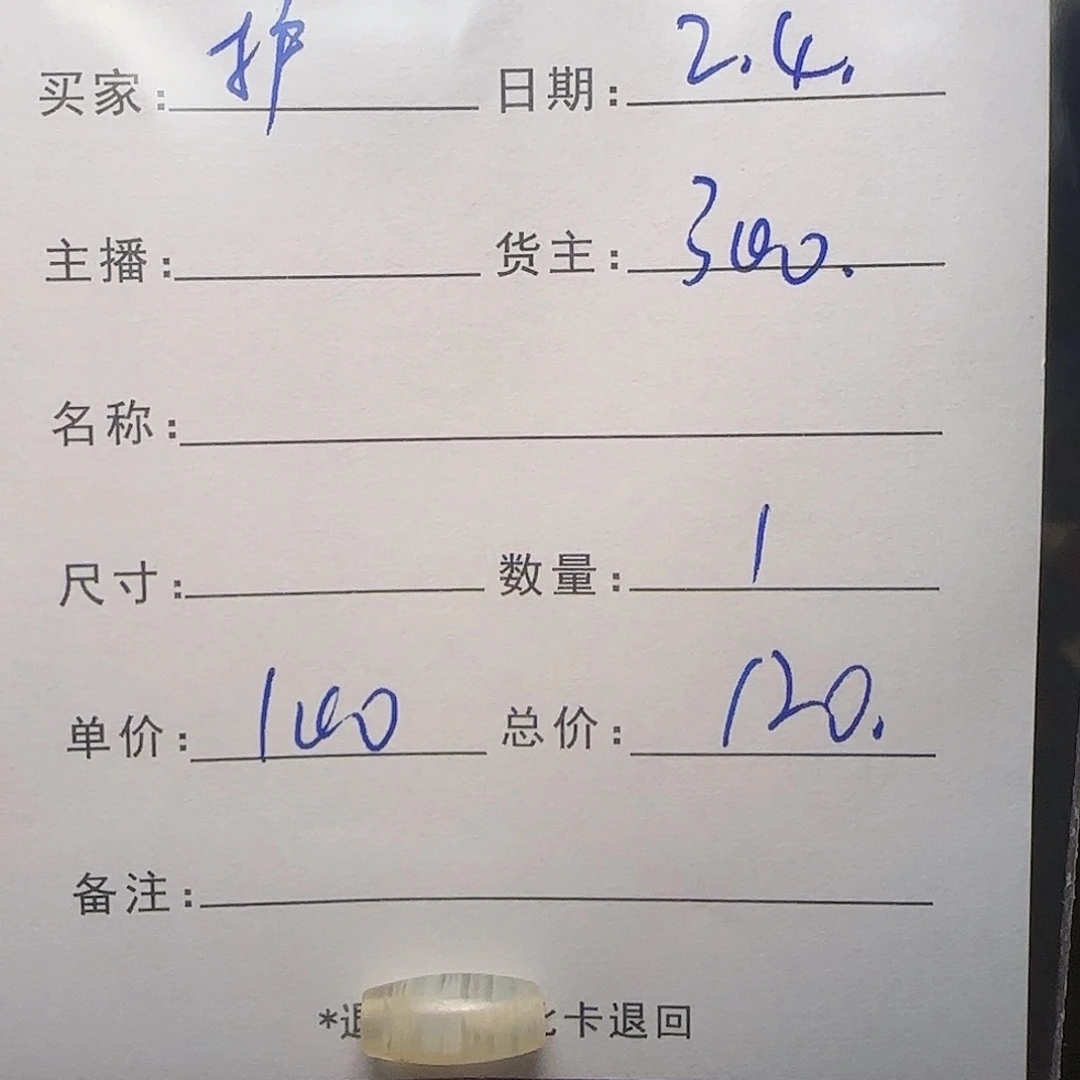 买家: 护 日期: 2.4.
主播: 货主: 300.
名称:
尺寸: 数量: 1
单价: 100 总价: 120.
备注:
*退 卡退回